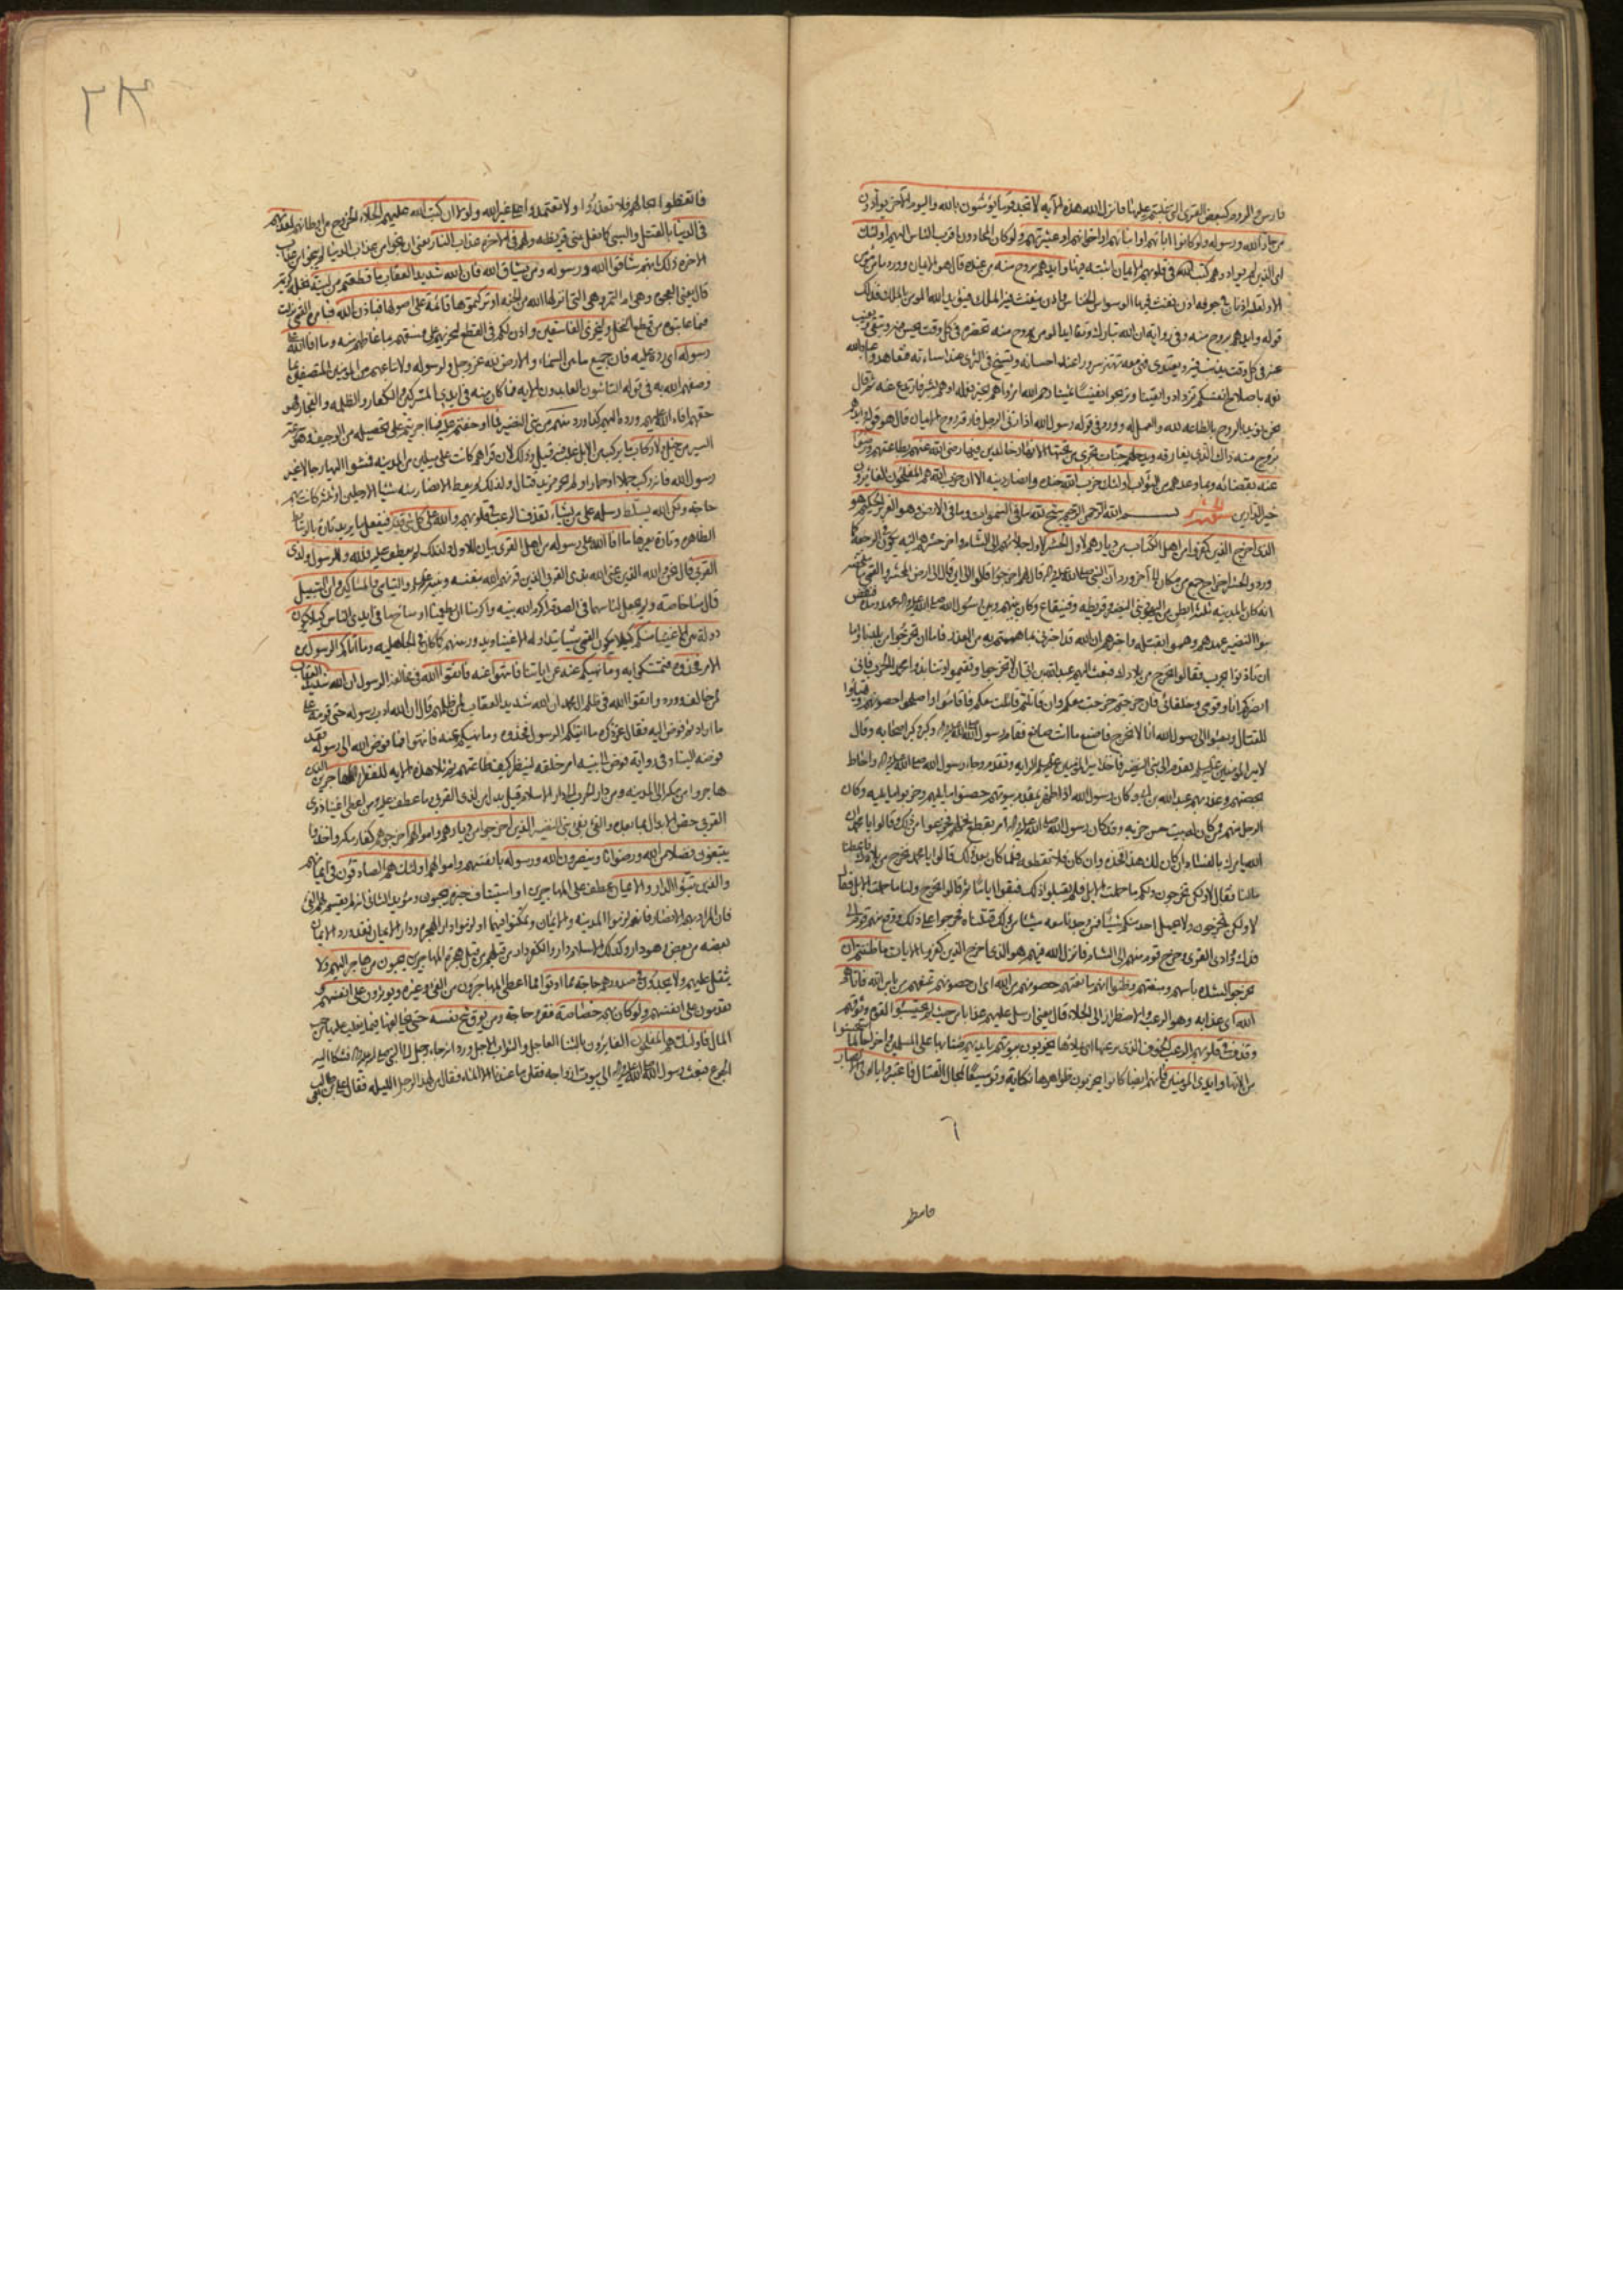 فارس والروم وكبعض القرى التي غلبتم عليها فانزل الله هذه الآية لا تجد قوما يؤمنون بالله واليوم الآخر يوادون
من حاد الله ورسوله ولو كانوا اباءهم او ابناءهم او اخوانهم او عشيرتهم ولو كان المحادون اقرب الناس اليهم اولئك
اي الذين لم يوادوهم كتب الله في قلوبهم الايمان اثبته فيها وايدهم بروح منه من عنده قال هو الايمان وورد ما من مؤمن
الا ولقلبه اذنان في جوفه اذن ينفث فيها الوسواس الخناس واذن ينفث فيها الملك فيؤيد الله المؤمن بالملك فذلك
قوله وايدهم بروح منه وفي رواية ان الله تبارك وتعالى ايد المؤمن بروح منه تحضره في كل وقت يحسن فيه ويتقي وتغيب
عنه في كل وقت يذنب فيه ويعتدي فهي معه تهتز سرورا عند احسانه وتسيخ في الثرى عند اساءته فتعاهدوا عباد الله
نعمه باصلاحكم انفسكم تزدادوا يقينا وتربحوا نفيسا ثمينا رحم الله امرءا هم بخير فعمله او هم بشر فارتدع عنه ثم قال
نحن نؤيد الروح بالطاعة لله والعمل له وورد في قوله رسول الله اذا زنى الرجل فارقه روح الايمان قال هو قوله وايدهم
بروح منه ذاك الذي يفارقه ويدخلهم جنات تجري من تحتها الانهار خالدين فيها رضي الله عنهم بطاعتهم ورضوا
عنه بقضائه وبما وعدهم من الثواب اولئك حزب الله جنده وانصار دينه الا ان حزب الله هم المفلحون الفائزون
خير الدارين سورة الحشر بسم الله الرحمن الرحيم سبح لله ما في السموات وما في الارض وهو العزيز الحكيم هو
الذي اخرج الذين كفروا من اهل الكتاب من ديارهم لاول الحشر
انه كان بالمدينة ثلثة ابطن من اليهود بني النضير وقريظة وقينقاع وكان بينهم وبين رسول الله
بنوا النضير عهدهم وهموا بقتله واخبرهم ان الله قد اخبرني بما هممتم به من الغدر فاما ان تخرجوا من بلدنا واما
ان تاذنوا بحرب فقالوا نخرج من بلادك فبعث اليهم عبدالله بن ابي ان لا تخرجوا وتقيموا وتنابذوا محمدا الحرب فاني
انصركم انا وقومي وحلفائي فان خرجتم خرجت معكم وان قاتلتم قاتلت معكم فاقاموا واصلحوا حصونهم وتهيئوا
للقتال وبعثوا الى رسول الله انا لا نخرج فاصنع ما انت صانع فقام رسول الله وكبر وكبر اصحابه وقال
لامير المؤمنين تقدم الى بني النضير فاخذ امير المؤمنين الراية وتقدم وجاء رسول الله واحاط
بحصنهم وغدر بهم عبدالله بن ابي وكان رسول الله اذا ظهر بمقدم بيوتهم حصنوا ما يليهم وخربوا ما يليه وكان
الرجل منهم ممن كان له بيت حسن خربه وقد كان رسول الله امر بقطع نخلهم فجزعوا من ذلك وقالوا يا محمد ان
الله يامرك بالفساد ان كان لك هذا فخذه وان كان لنا فلا تقطعه فلما كان بعد ذلك قالوا يا محمد نخرج من بلادك فاعطنا
مالنا فقال لا ولكن تخرجون ولكم ما حملت الابل فلم يقبلوا ذلك فبقوا اياما ثم قالوا نخرج ولنا ما حملت الابل فقال
لا ولكن تخرجون ولا يحمل احد منكم شيئا فمن وجدنا معه شيئا من ذلك قتلناه فخرجوا على ذلك ووقع منهم قوم الى
فدك ووادي القرى وخرج قوم منهم الى الشام فانزل الله فيهم هو الذي اخرج الذين كفروا الايات ما ظننتم ان
يخرجوا لشدة باسهم ومنعتهم وظنوا انهم مانعتهم حصونهم من الله اي ان حصونهم تمنعهم من باس الله فاتاهم
الله اي عذابه وهو الرعب والاضطرار الى الجلاء قال يعني ارسل عليهم عذابا من حيث لم يحتسبوا لقوة وثوقهم
وقذف في قلوبهم الرعب الخوف الذي يرعبها اي يملأها يخربون بيوتهم بايديهم ضنا بها على المسلمين واخراجا لما استحسنوا
من آلاتها وايدي المؤمنين فانهم ايضا كانوا يخربون ظواهرها نكاية وتوسيعا لمجال القتال فاعتبروا يا اولي الابصار
٦
فاتعظوا بحالهم فلا تغدروا ولا تعتمدوا على غير الله ولولا ان كتب الله عليهم الجلاء الخروج من اوطانهم لعذبهم
في الدنيا بالقتل والسبي كما فعل ببني قريظة ولهم في الاخرة عذاب النار يعني ان نجوا من عذاب الدنيا لم ينجوا من عذاب
الاخرة ذلك بانهم شاقوا الله ورسوله ومن يشاق الله فان الله شديد العقاب ما قطعتم من لينة نخلة كريمة
قال يعني العجوة وهي ام التمر وهي التي انزلها الله من الجنة او تركتموها قائمة على اصولها فباذن الله
وليخزي الفاسقين واذن لكم في القطع ليخزيهم على فسقهم بما غاظهم منه وما افاء الله على
رسوله اي رده عليه فان جميع ما بين السماء والارض لله عز وجل ولرسوله ولاتباعهم من المؤمنين المتصفين بما
وصفهم الله به في قوله التائبون العابدون الاية فما كان منه في ايدي المشركين والكفار والظلمة والفجار فهو
حقهم افاء الله عليهم ورده اليهم كما ورد منهم من بني النضير فما اوجفتم عليه فما اجريتم على تحصيله من الوجيف وهو سرعة
السير من خيل ولا ركاب ما يركب من الابل غلب فيه قيل وذلك لان قراهم كانت على ميلين من المدينة فمشوا اليها رجالا غير
رسول الله فانه ركب جملا او حمارا ولم يجر مزيد قتال ولذلك لم يعط الانصار منه شيئا الا رجلين او ثلثة كانت بهم
حاجة ولكن الله يسلط رسله على من يشاء بقذف الرعب في قلوبهم والله على كل شيء قدير فيفعل ما يريد تارة بالوسائط
الظاهرة وتارة بغيرها ما افاء الله على رسوله من اهل القرى بيان للاول ولذلك لم يعطف عليه فلله وللرسول ولذي
القربى قال نحن والله الذين عنى الله بذي القربى الذين قرنهم الله بنفسه ونبيه واليتامى والمساكين وابن السبيل
قال منا خاصة ولم يجعل لنا سهما في الصدقة اكرم الله نبيه واكرمنا ان يطعمنا اوساخ ما في ايدي الناس كيلا يكون
دولة بين الاغنياء منكم كيلا يكون الفيء شيئا يتداوله الاغنياء ويدور بينهم كما كان في الجاهلية وما اتاكم الرسول من
الامر فخذوه فتمسكوا به وما نهيكم عنه عن اتيانه فانتهوا عنه واتقوا الله في مخالفة الرسول ان الله شديد العقاب
لمن خالف وورد واتقوا الله في ظلم ال محمد ان الله شديد العقاب لمن ظلمهم قال ان الله ادب رسوله حتى قومه على
ما اراد ثم فوض اليه فقال عز ذكره ما اتيكم الرسول فخذوه وما نهيكم عنه فانتهوا فما فوض الله الى رسوله فقد
فوضه الينا وفي رواية فوض الى نبيه امر خلقه لينظر كيف طاعتهم ثم تلا هذه الاية للفقراء المهاجرين الذين
هاجروا من مكة الى المدينة ومن دار الحرب الى دار الاسلام قيل بدل من لذي القربى وما عطف عليه
الذين اخرجوا من ديارهم واموالهم
يبتغون فضلا من الله ورضوانا وينصرون الله ورسوله بانفسهم واموالهم اولئك هم الصادقون في ايمانهم
والذين تبوؤا الدار والايمان عطف على المهاجرين او استيناف خبره يحبون ويؤيد الثاني انه لم يقسم لهم الفيء
فان المراد بهم الانصار فانهم لزموا المدينة والايمان وتمكنوا فيهما او لزموا دار الهجرة ودار الايمان فقد ورد الايمان
بعضه من بعض وهو دار وكذلك الاسلام دار والكفر دار من قبلهم من قبل هجرة المهاجرين يحبون من هاجر اليهم ولا
يثقل عليهم ولا يجدون في صدورهم حاجة مما اوتوا مما اعطي المهاجرون من الفيء وغيره ويؤثرون على انفسهم
يقدمون على انفسهم ولو كان بهم خصاصة فقر وحاجة ومن يوق شح نفسه حتى يخالفها فيما يغلب عليها من حب
المال فاولئك هم المفلحون الفايزون بالثناء العاجل والثواب الاجل ورد انه جاء رجل الى النبي فشكا اليه
الجوع فبعث رسول الله الى بيوت ازواجه فقلن ما عندنا الا الماء فقال من لهذا الرجل الليلة فقال علي بن ابي